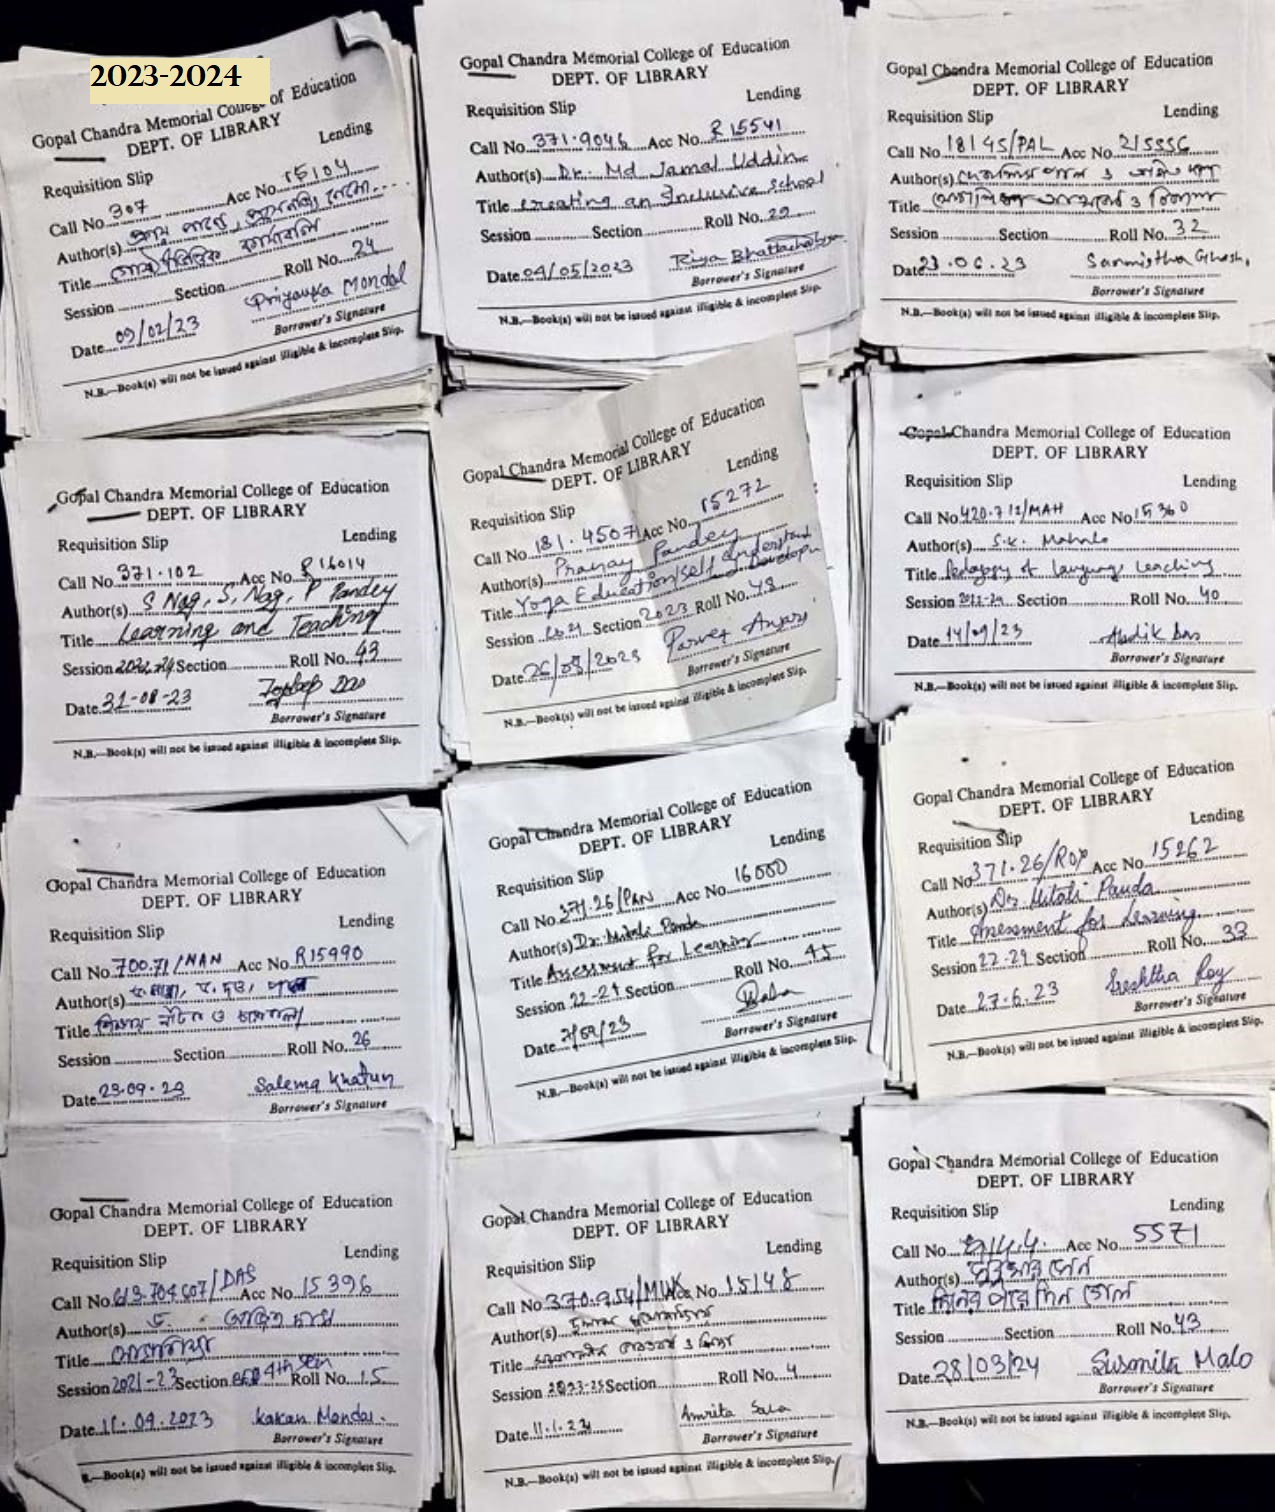 2023-2024
Gopal Chandra Memorial College of Education
DEPT. OF LIBRARY
Requisition Slip Lending
Call No. 307 Acc No. 15104
Author(s)
Title
Session Section Roll No. 24
Date 09/02/23 Priyanka Mondal
Borrower's Signature
N.B.—Book(s) will not be issued against illigible & incomplete Slip.
Gopal Chandra Memorial College of Education
DEPT. OF LIBRARY
Requisition Slip Lending
Call No. 371.9046 Acc No. R 15541
Author(s) Dr. Md Jamal Uddin
Title creating an Inclusive School
Session Section Roll No. 29
Date 04/05/2023 Riya Bhattacharya
Borrower's Signature
N.B.—Book(s) will not be issued against illigible & incomplete Slip.
Gopal Chandra Memorial College of Education
DEPT. OF LIBRARY
Requisition Slip Lending
Call No. 18145/PAL Acc No. 215556
Author(s)
Title
Session Section Roll No. 32
Date 23.06.23 Sanmistha Ghosh,
Borrower's Signature
N.B.—Book(s) will not be issued against illigible & incomplete Slip.
Gopal Chandra Memorial College of Education
DEPT. OF LIBRARY
Requisition Slip Lending
Call No. 371.102 Acc No. R 16014
Author(s) S Nag, S, Nag, P Pandey
Title Learning and Teaching
Session 2022-24 Section Roll No. 43
Date 31-08-23
Borrower's Signature
N.B.—Book(s) will not be issued against illigible & incomplete Slip.
Gopal Chandra Memorial College of Education
DEPT. OF LIBRARY
Requisition Slip Lending
Call No. 181.4507 Acc No. 15272
Author(s) Pranay Pandey
Title Yoga Education/self understand
Session Section 2023 Roll No. 48
Date 26/08/2023 Parvez
Borrower's Signature
N.B.—Book(s) will not be issued against illigible & incomplete Slip.
Gopal Chandra Memorial College of Education
DEPT. OF LIBRARY
Requisition Slip Lending
Call No. 420.712/MAH Acc No. 15360
Author(s) S.K. Mahato
Title Pedagogy of language teaching
Session 2022-24 Section Roll No. 40
Date 14/09/23 Das
Borrower's Signature
N.B.—Book(s) will not be issued against illigible & incomplete Slip.
Gopal Chandra Memorial College of Education
DEPT. OF LIBRARY
Requisition Slip Lending
Call No. 700.71/NAN Acc No. R15990
Author(s)
Title
Session Section Roll No. 26
Date 23.09.23 Salema Khatun
Borrower's Signature
Gopal Chandra Memorial College of Education
DEPT. OF LIBRARY
Requisition Slip Lending
Call No. 371.26/PAN Acc No. 16000
Author(s) Dr. Mitali Panda
Title Assessment for Learning
Session 22-24 Section Roll No. 45
Date 7/09/23
Borrower's Signature
N.B.—Book(s) will not be issued against illigible & incomplete Slip.
Gopal Chandra Memorial College of Education
DEPT. OF LIBRARY
Requisition Slip Lending
Call No. 371.26/ROY Acc No. 15262
Author(s) Dr. Mitali Panda
Title Assessment for Learning
Session 22-24 Section Roll No. 33
Date 27.6.23 Sreshtha Roy
Borrower's Signature
N.B.—Book(s) will not be issued against illigible & incomplete Slip.
Gopal Chandra Memorial College of Education
DEPT. OF LIBRARY
Requisition Slip Lending
Call No. 613.704607/DAS Acc No. 15396
Author(s) ড.
Title
Session 2021-23 Section BED 4th Sem Roll No. 15
Date 11.09.2023 Kakan Mondal.
Borrower's Signature
—Book(s) will not be issued against illigible & incomplete Slip.
Gopal Chandra Memorial College of Education
DEPT. OF LIBRARY
Requisition Slip Lending
Call No. 370.954/MUK Acc No. 15148
Author(s)
Title
Session 2023-25 Section Roll No. 4
Date 11.1.24 Amrita Saha
Borrower's Signature
N.B.—Book(s) will not be issued against illigible & incomplete Slip.
Gopal Chandra Memorial College of Education
DEPT. OF LIBRARY
Requisition Slip Lending
Call No. Acc No. 5571
Author(s)
Title দিনের পরে দিন
Session Section Roll No. 43
Date 28/03/24 Susmita Malo
Borrower's Signature
N.B.—Book(s) will not be issued against illigible & incomplete Slip.